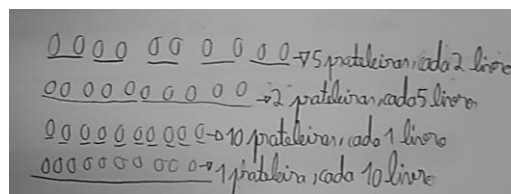 0 0 0 0 0 0 0 0 0 0 → 5 prateleiras, cada 2 livro
0 0 0 0 0 0 0 0 0 0 → 2 prateleiras, cada 5 livro
0 0 0 0 0 0 0 0 0 0 → 10 prateleiras, cada 1 livro
0 0 0 0 0 0 0 0 0 0 → 1 prateleira, cada 10 livro